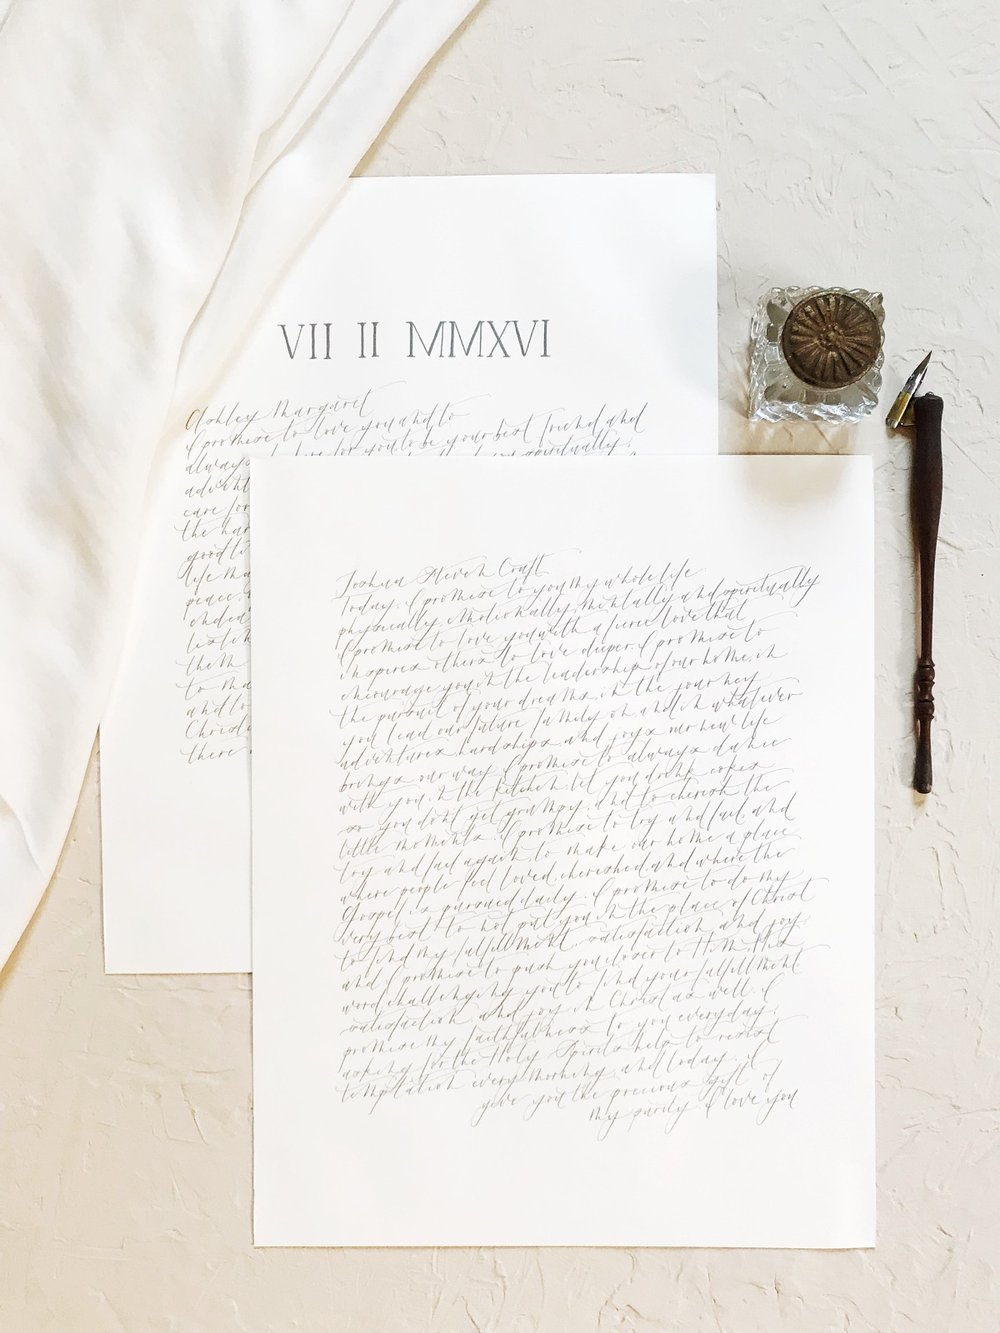 VII II MMXVI
Ashley Margaret
I promise to love you and to
always be here for you to be your best friend and
spiritually,
advent
care for
the har
good ti
life tha
peace,
ended
listen
them
to ma
and to
Christ
there
Joshua Steven Craft
Today, I promise to you my whole life
physically, emotionally, mentally and spiritually
I promise to love you with a fierce love that
inspires others to love deeper. I promise to
encourage you in the leadership of our home, in
the pursuit of your dreams, in the journey
you lead our future family on and in whatever
adventures hardships and joys our new life
brings our way. I promise to always dance
with you in the kitchen, let you drink cokes
so you don't get grumpy, and to cherish the
little moments. I promise to try and fail, and
try and fail again, to make our home a place
where people feel loved, cherished and where the
Gospel is pursued daily. I promise to do my
very best to not put you in the place of Christ
to find my fulfillment, satisfaction and joy,
and I promise to push you closer to Him, His
word, challenging you to find your fulfillment
satisfaction, and joy in Christ as well. I
promise my faithfulness to you everyday,
asking for the Holy Spirit's help to resist
temptation every morning, and today, I
give you the precious gift of
my purity I love you